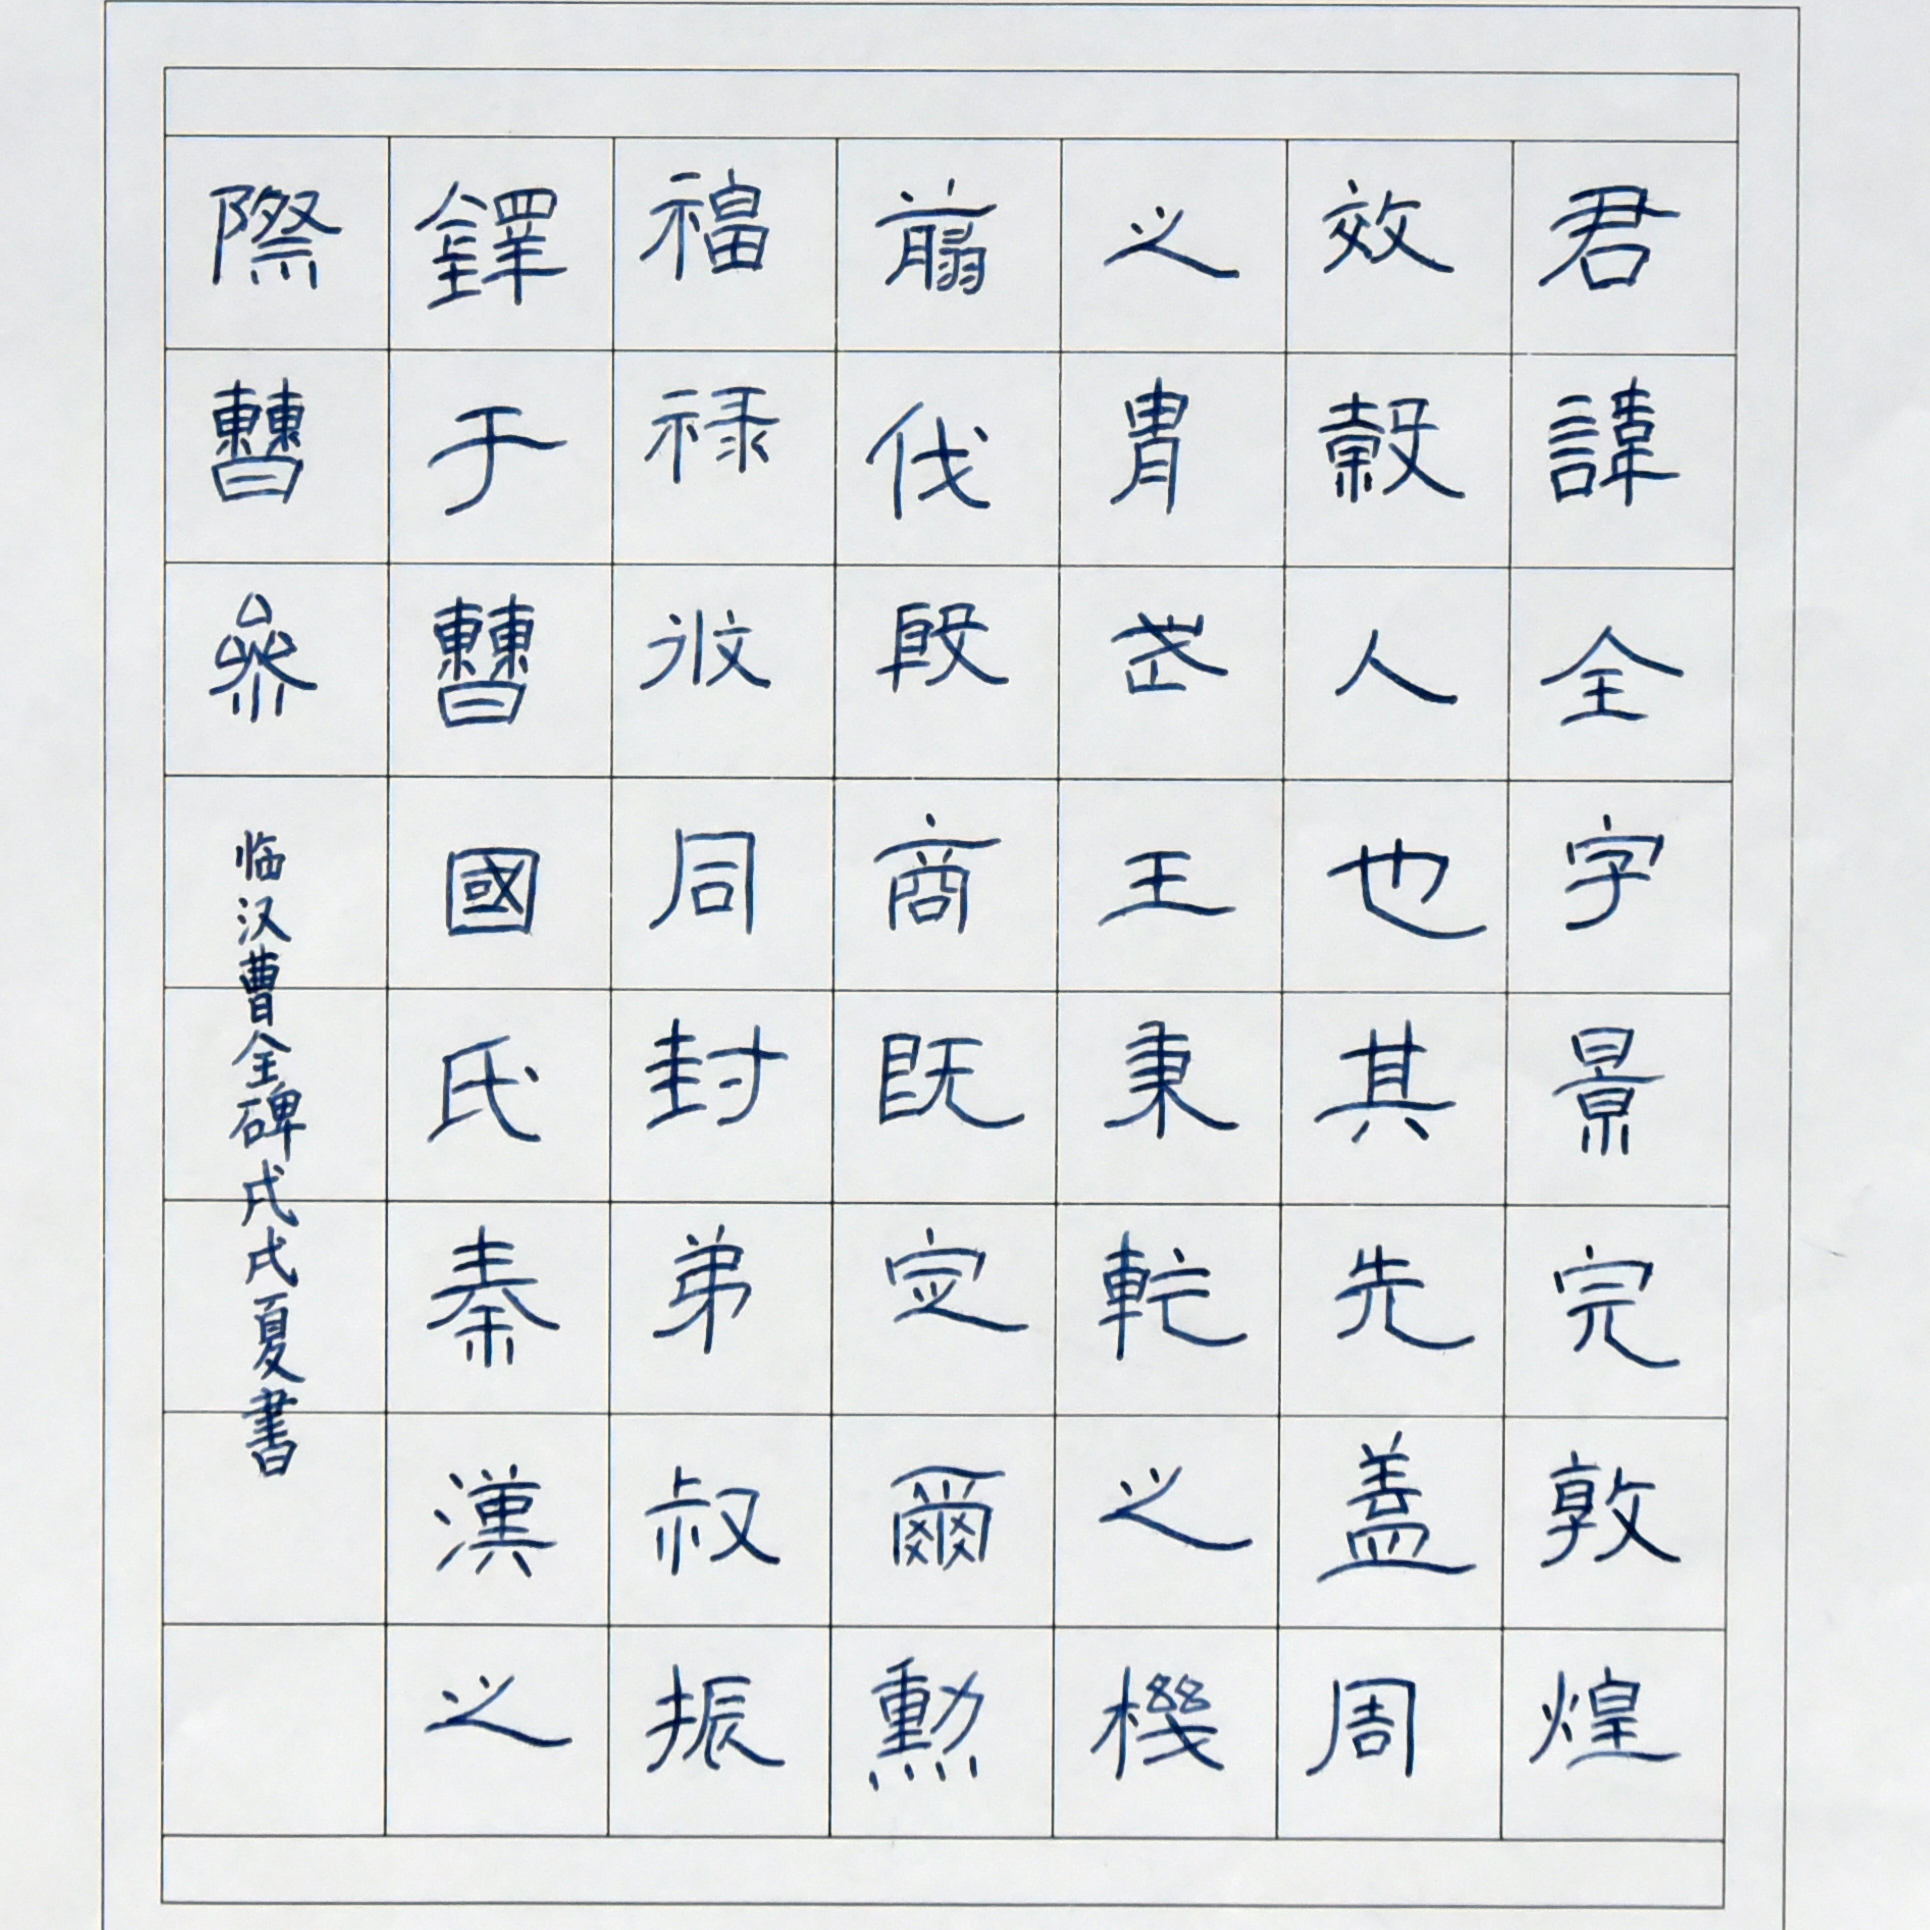 君諱全字景完敦煌
效穀人也其先蓋周
之胄武王秉乾之機
翦伐殷商既定爾勳
福祿攸同封弟叔振
鐸于曹國氏秦漢之
際曹參
临汉曹全碑戌戌夏書